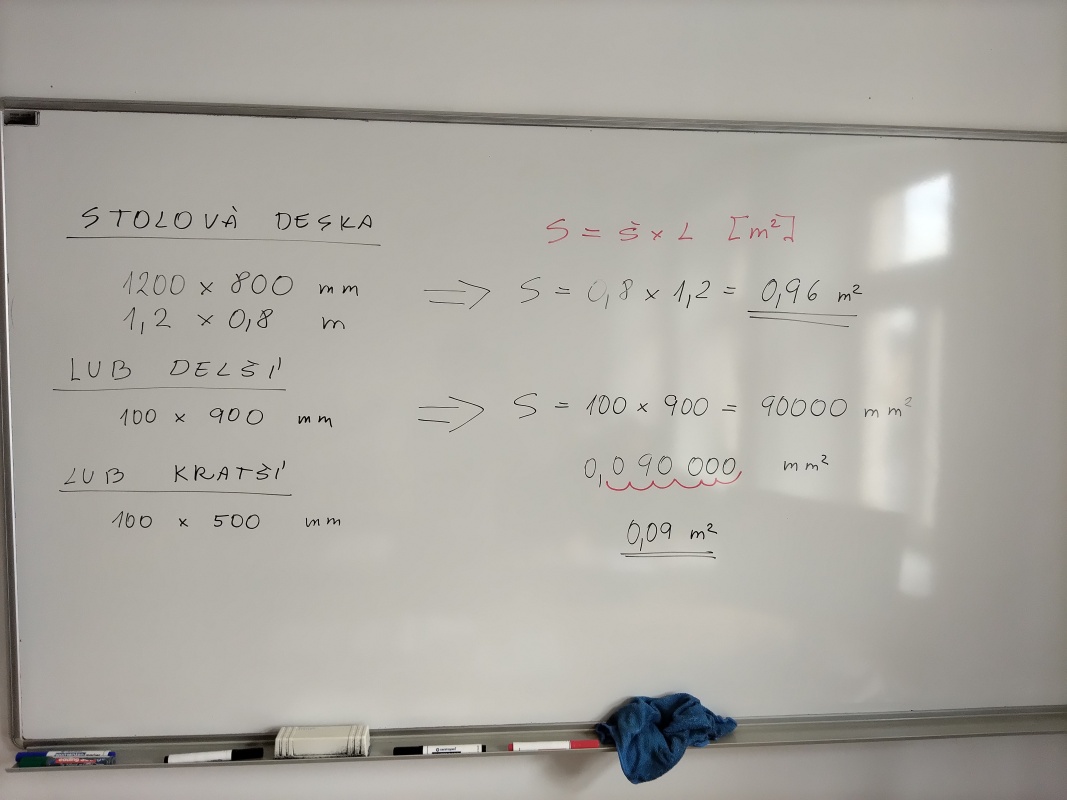 STOLOVÀ DESKA
1200 × 800 mm
1,2 × 0,8 m
LUB DELŠÍ
100 × 900 mm
LUB KRATŠÍ
100 × 500 mm
S = Š × L [m²]
⇒ S = 0,8 × 1,2 = 0,96 m²
⇒ S = 100 × 900 = 90000 mm²
0,090 000, mm²
0,09 m²